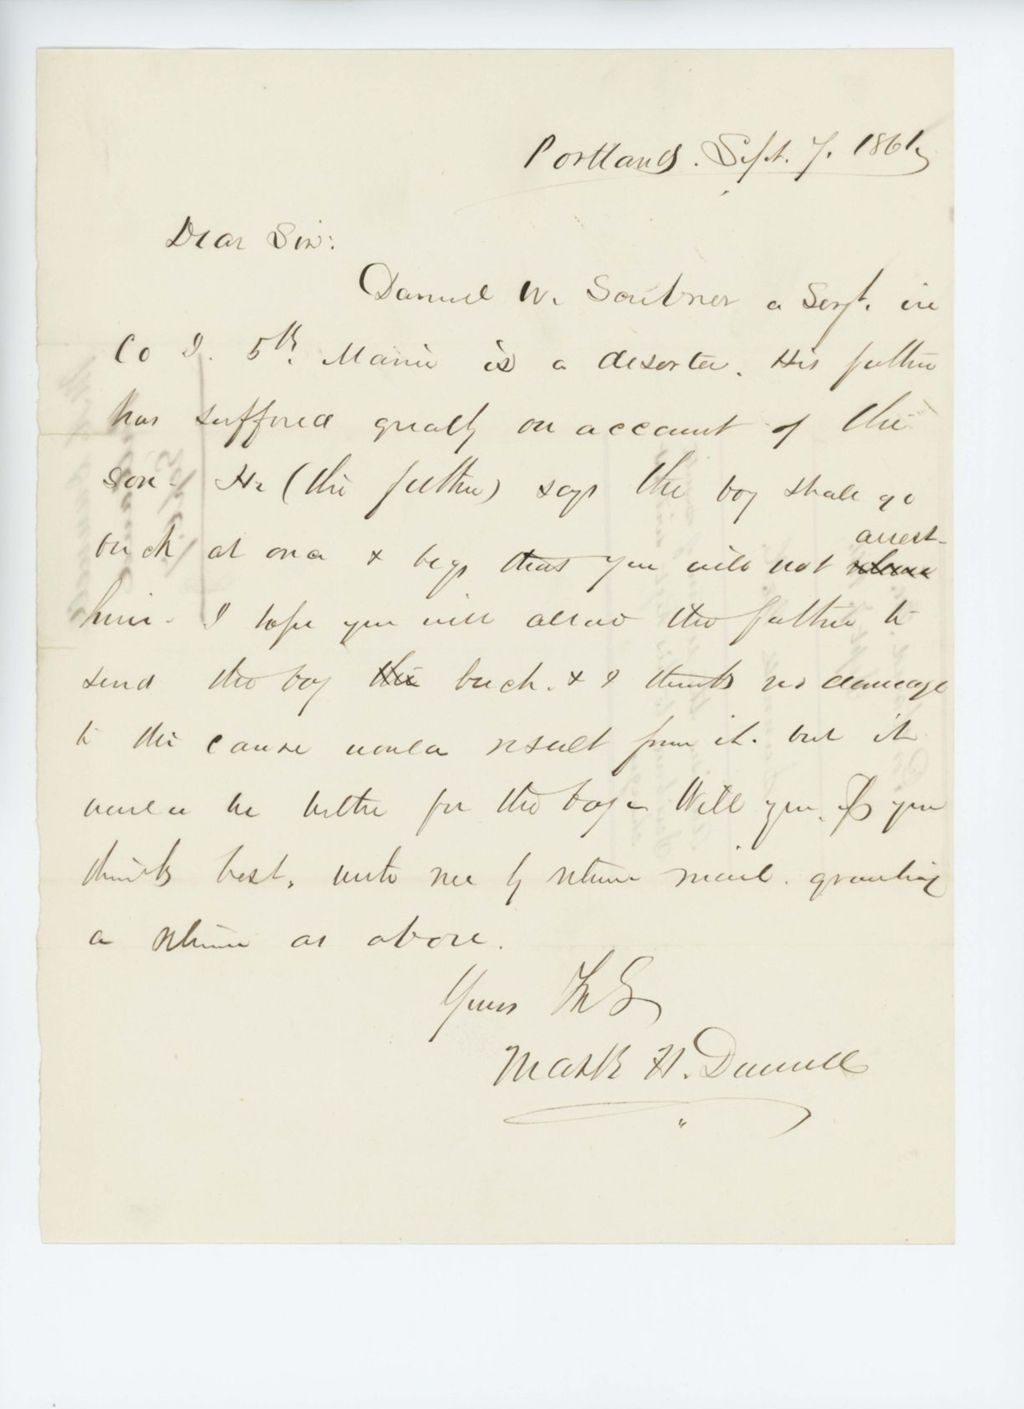 Portland. Sept. 7. 1861,
Dear Sir:
Daniel W. Scribner a Sergt. in
Co I. 5th. Maine is a deserter. His father
has suffered greatly on account of the
son. He (the father) says the boy shall go
back at once & begs that you will not arrest
him. I hope you will allow the father to
send the boy back. & I think no damage
to the cause would result from it. but it
would be better for the boy. Will you, if you
think best, write me by return mail. granting
a return as above.
Yours
Mark H. Dunnell